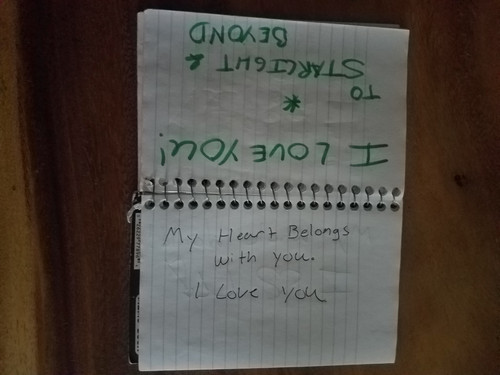 I LOVE YOU!
TO *
STARLIGHT &
BEYOND
My Heart Belongs
with you.
I Love you